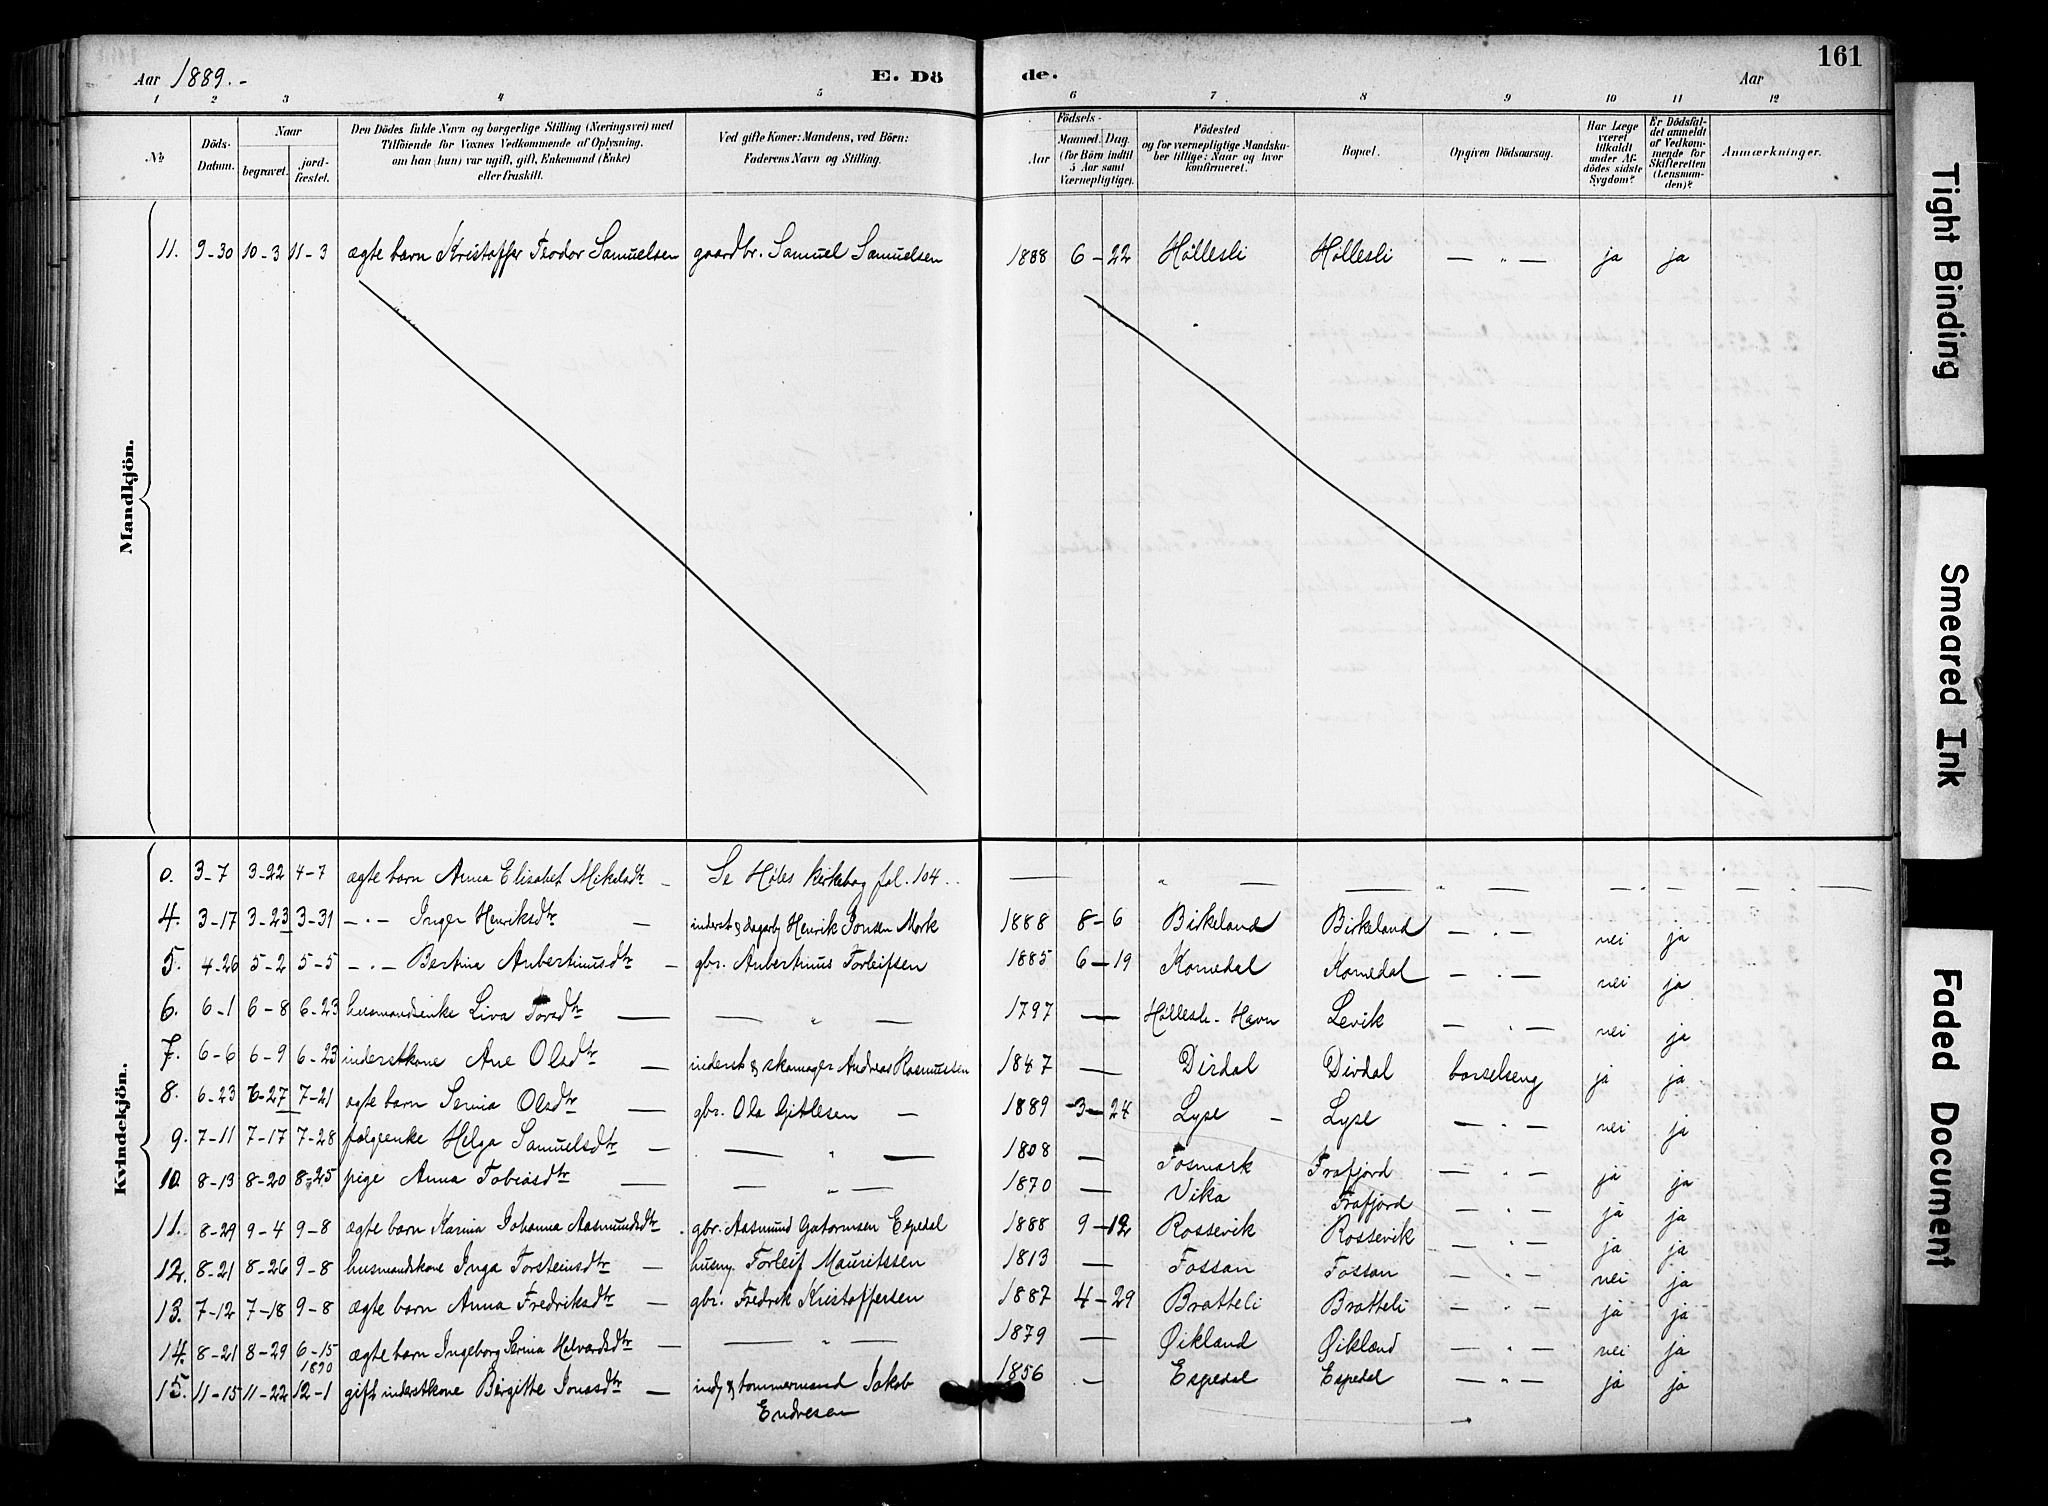 161
Aar 1889.- E. Dö de. Aar
1 2 3 4 5 6 7 8 9 10 11 12
No Döds-Datum. Naar begravet. jord-fæstet. Den Dödes fulde Navn og borgerlige Stilling (Næringsvei) med Tilföiende for Voxnes Vedkommende af Oplysning, om han (hun) var ugift, gift, Enkemand (Enke) eller fraskilt. Ved gifte Koner: Mandens, ved Börn: Faderens Navn og Stilling. Födsels- Aar Maaned. Dag. (for Börn indtil 5 Aar samt Værnepligtige). Födested og for værnepligtige Mandskaber tillige: Naar og hvor konfirmeret. Bopæl. Opgiven Dödsaarsag. Har Læge været tilkaldt under Afdödes sidste Sygdom? Er Dödsfaldet anmeldt af Vedkommende for Skifteretten (Lensmanden)? Anmærkninger.
Mandkjön.
11. 9-30 10-3 11-3 ægte barn Kristoffer Teodor Samuelsen gaardbr. Samuel Samuelsen 1888 6-22 Høllesli Høllesli — " — ja ja
Kvindekjön.
0. 3-7 3-22 4-7 ægte barn Anna Elisabet Mikalsdtr — Se Høles kirkebog fol. 104 — " —
4. 3-17 3-23 3-31 — " — Inger Henriksdtr — inderst & dagarb Henrik Jonsen Mork 1888 8-6 Birkeland Birkeland — " — nei ja
5. 4-26 5-2 5-5 — " — Bertina Aubertinusdtr — gbr. Aubertinus Torleifsen 1885 6-19 Komedal Komedal — " — nei ja
6. 6-1 6-8 6-23 husmandsenke Liva Torsdtr — — " — 1797 — Høllesli-Havn Levik — " — nei ja
7. 6-6 6-9 6-23 inderstkone Ane Olsdtr — inderst & skomager Andreas Rasmussen 1847 — Dirdal Dirdal barselseng ja ja
8. 6-23 6-27 7-21 ægte barn Serina Olsdtr — gbr. Ola Gitlesen — 1889 3-24 Lyse — Lyse — " — nei ja
9. 7-11 7-17 7-28 folgeenke Helga Samuelsdtr — — " — 1808 — Fosmark Frafjord — " — ja ja
10. 8-13 8-20 8-25 pige Anna Tobiasdtr — — " — 1870 — Vika Frafjord — " — ja ja
11. 8-29 9-4 9-8 ægte barn Karina Johanna Aasmundsdtr gbr. Aasmund Gutormsen Espedal 1888 9-12 Rossevik Rossevik — " — ja ja
12. 8-21 8-26 9-8 husmandskone Inga Torsteinsdtr — husm. Torleif Mauritssen 1813 — Fossan Fossan — " — nei ja
13. 7-12 7-18 9-8 ægte barn Anna Fredriksdtr — gbr. Fredrik Kristoffersen 1887 4-29 Bratteli Bratteli — " — ja ja
14. 8-21 8-29 6-15 1890 ægte barn Ingeborg Serina Halvardsdtr — — " — 1879 — Øikland Øikland — " — nei ja
15. 11-15 11-22 12-1 gift inderstkone Birgitte Jonasdtr — ind. & tømmermand Jakob Endresen 1856 — Espedal Espedal — " — ja ja
Tight Binding
Smeared Ink
Faded Document